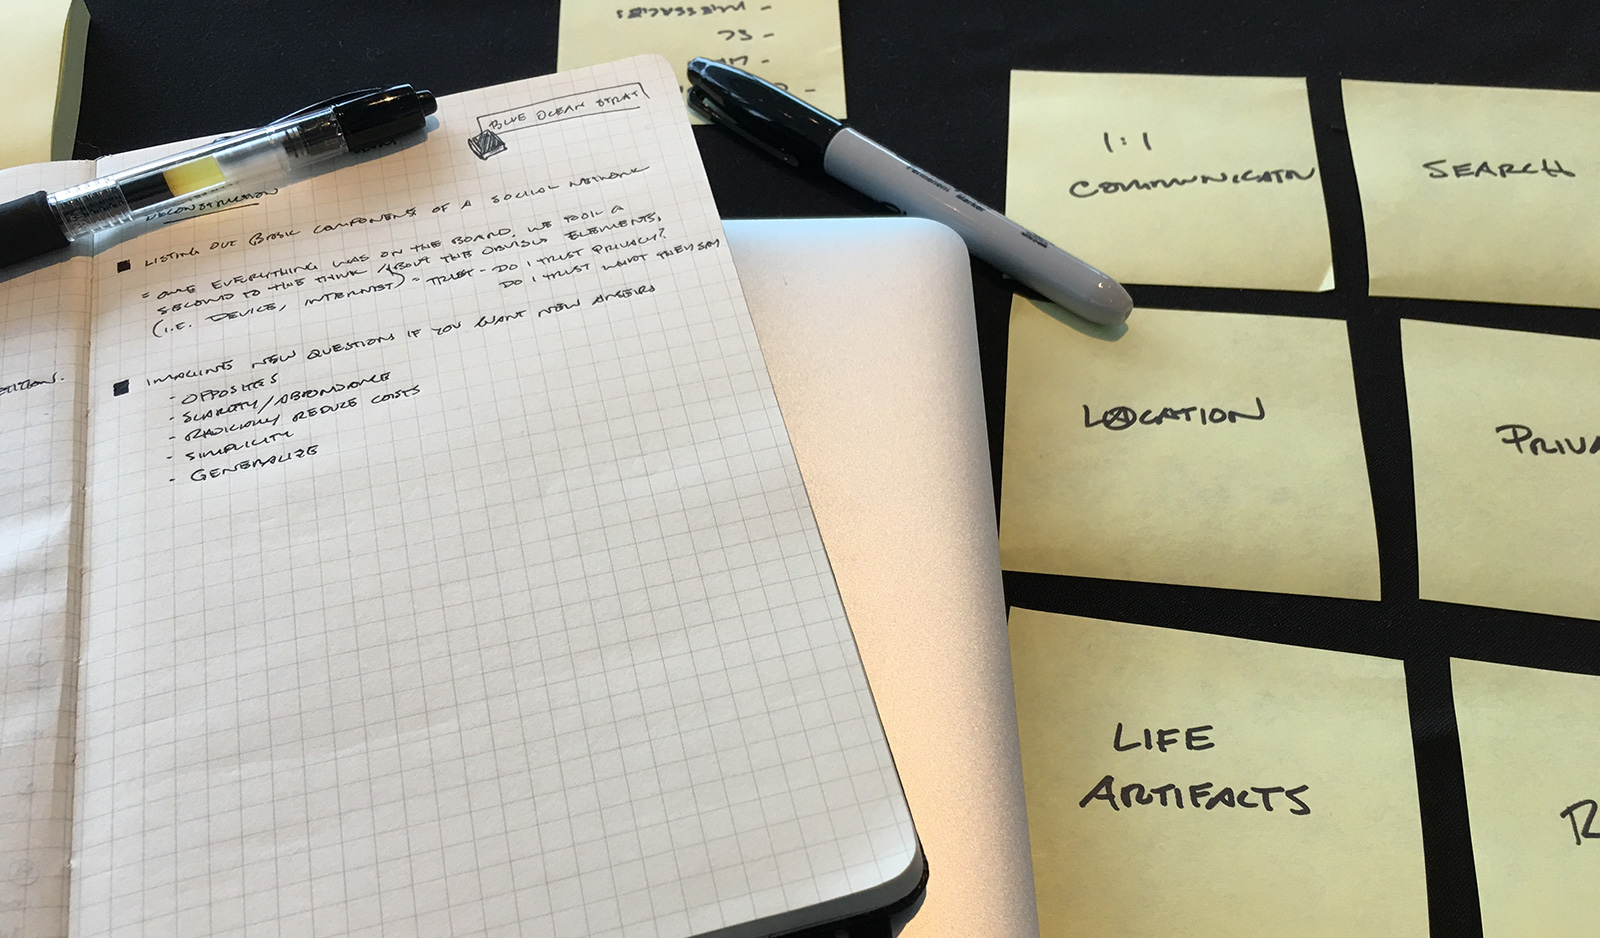 BLUE OCEAN STRAT
DECONSTRUCTION
LISTING OUT BASIC COMPONENTS OF A SOCIAL NETWORK
= ONCE EVERYTHING WAS ON THE BOARD, WE TOOK A
SECOND TO THE THINK ABOUT THE OBVIOUS ELEMENTS,
(I.E. DEVICE, INTERNET) - TRUST - DO I TRUST PRIVACY?
DO I TRUST WHAT THEY SAY
IMAGINE NEW QUESTIONS IF YOU WANT NEW
- OPPOSITES
- SCARCITY/ABUNDANCE
- RADICALLY REDUCE COSTS
- SIMPLICITY
- GENERALIZE
1:1
COMMUNICATN
SEARCH
LOCATION
PRIVA
LIFE
ARTIFACTS
R